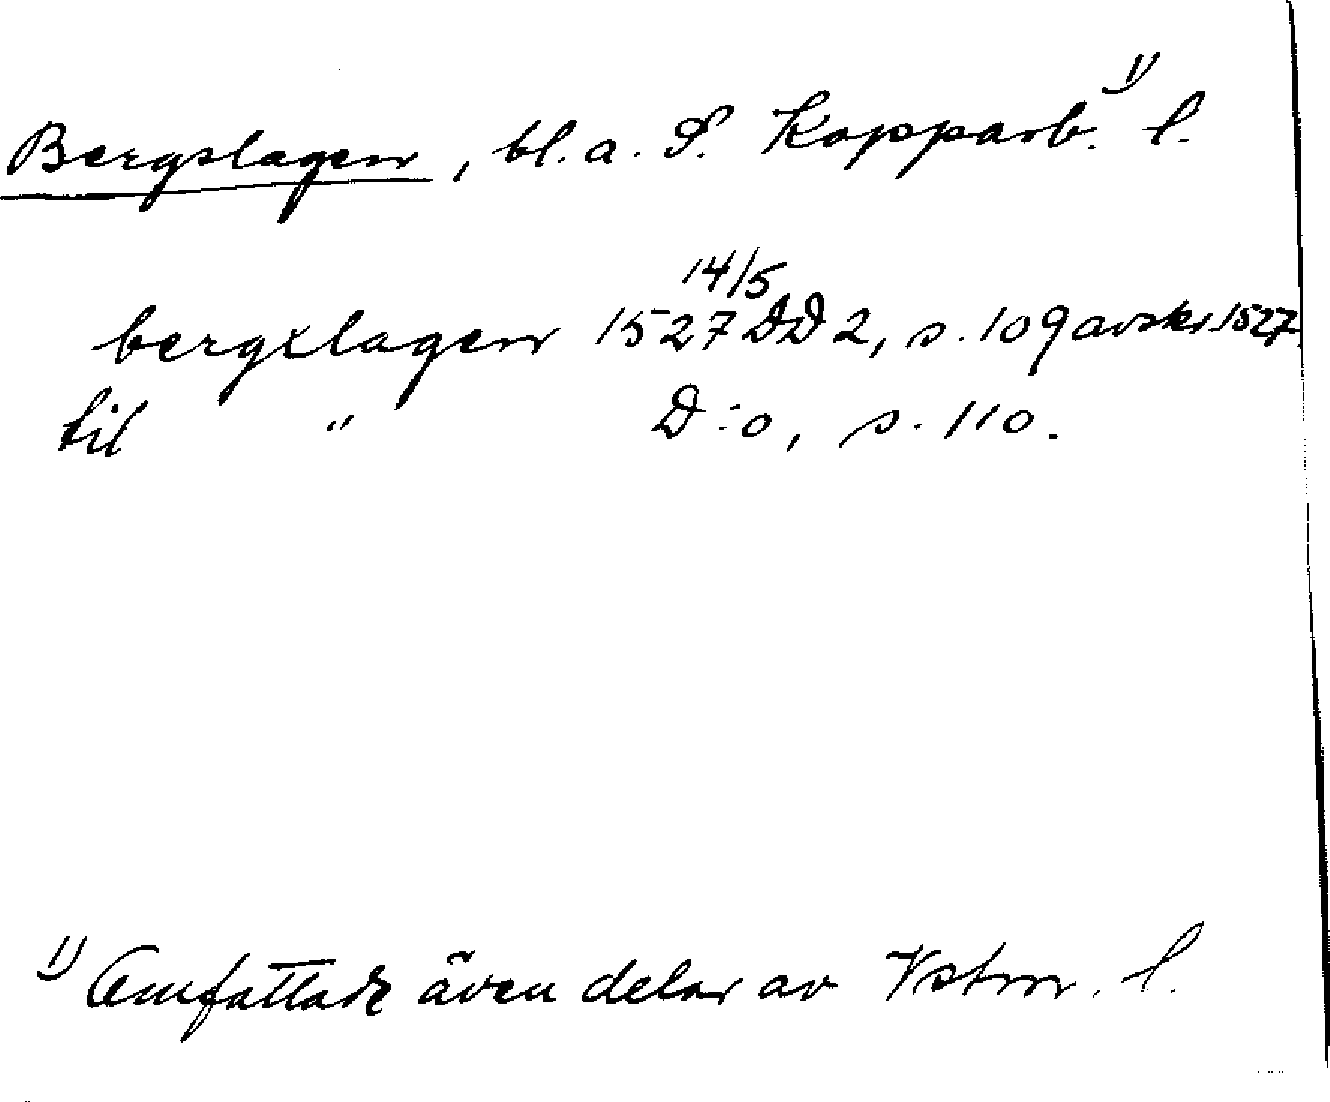 Bergslagen, bl.a. S. Kopparb. 1) l.
bergxlagen 1527 14/5 DD 2, s. 109 avskr. 1527
til " D:o, s. 110.
1) Omfattade även delar av Vstm. l.